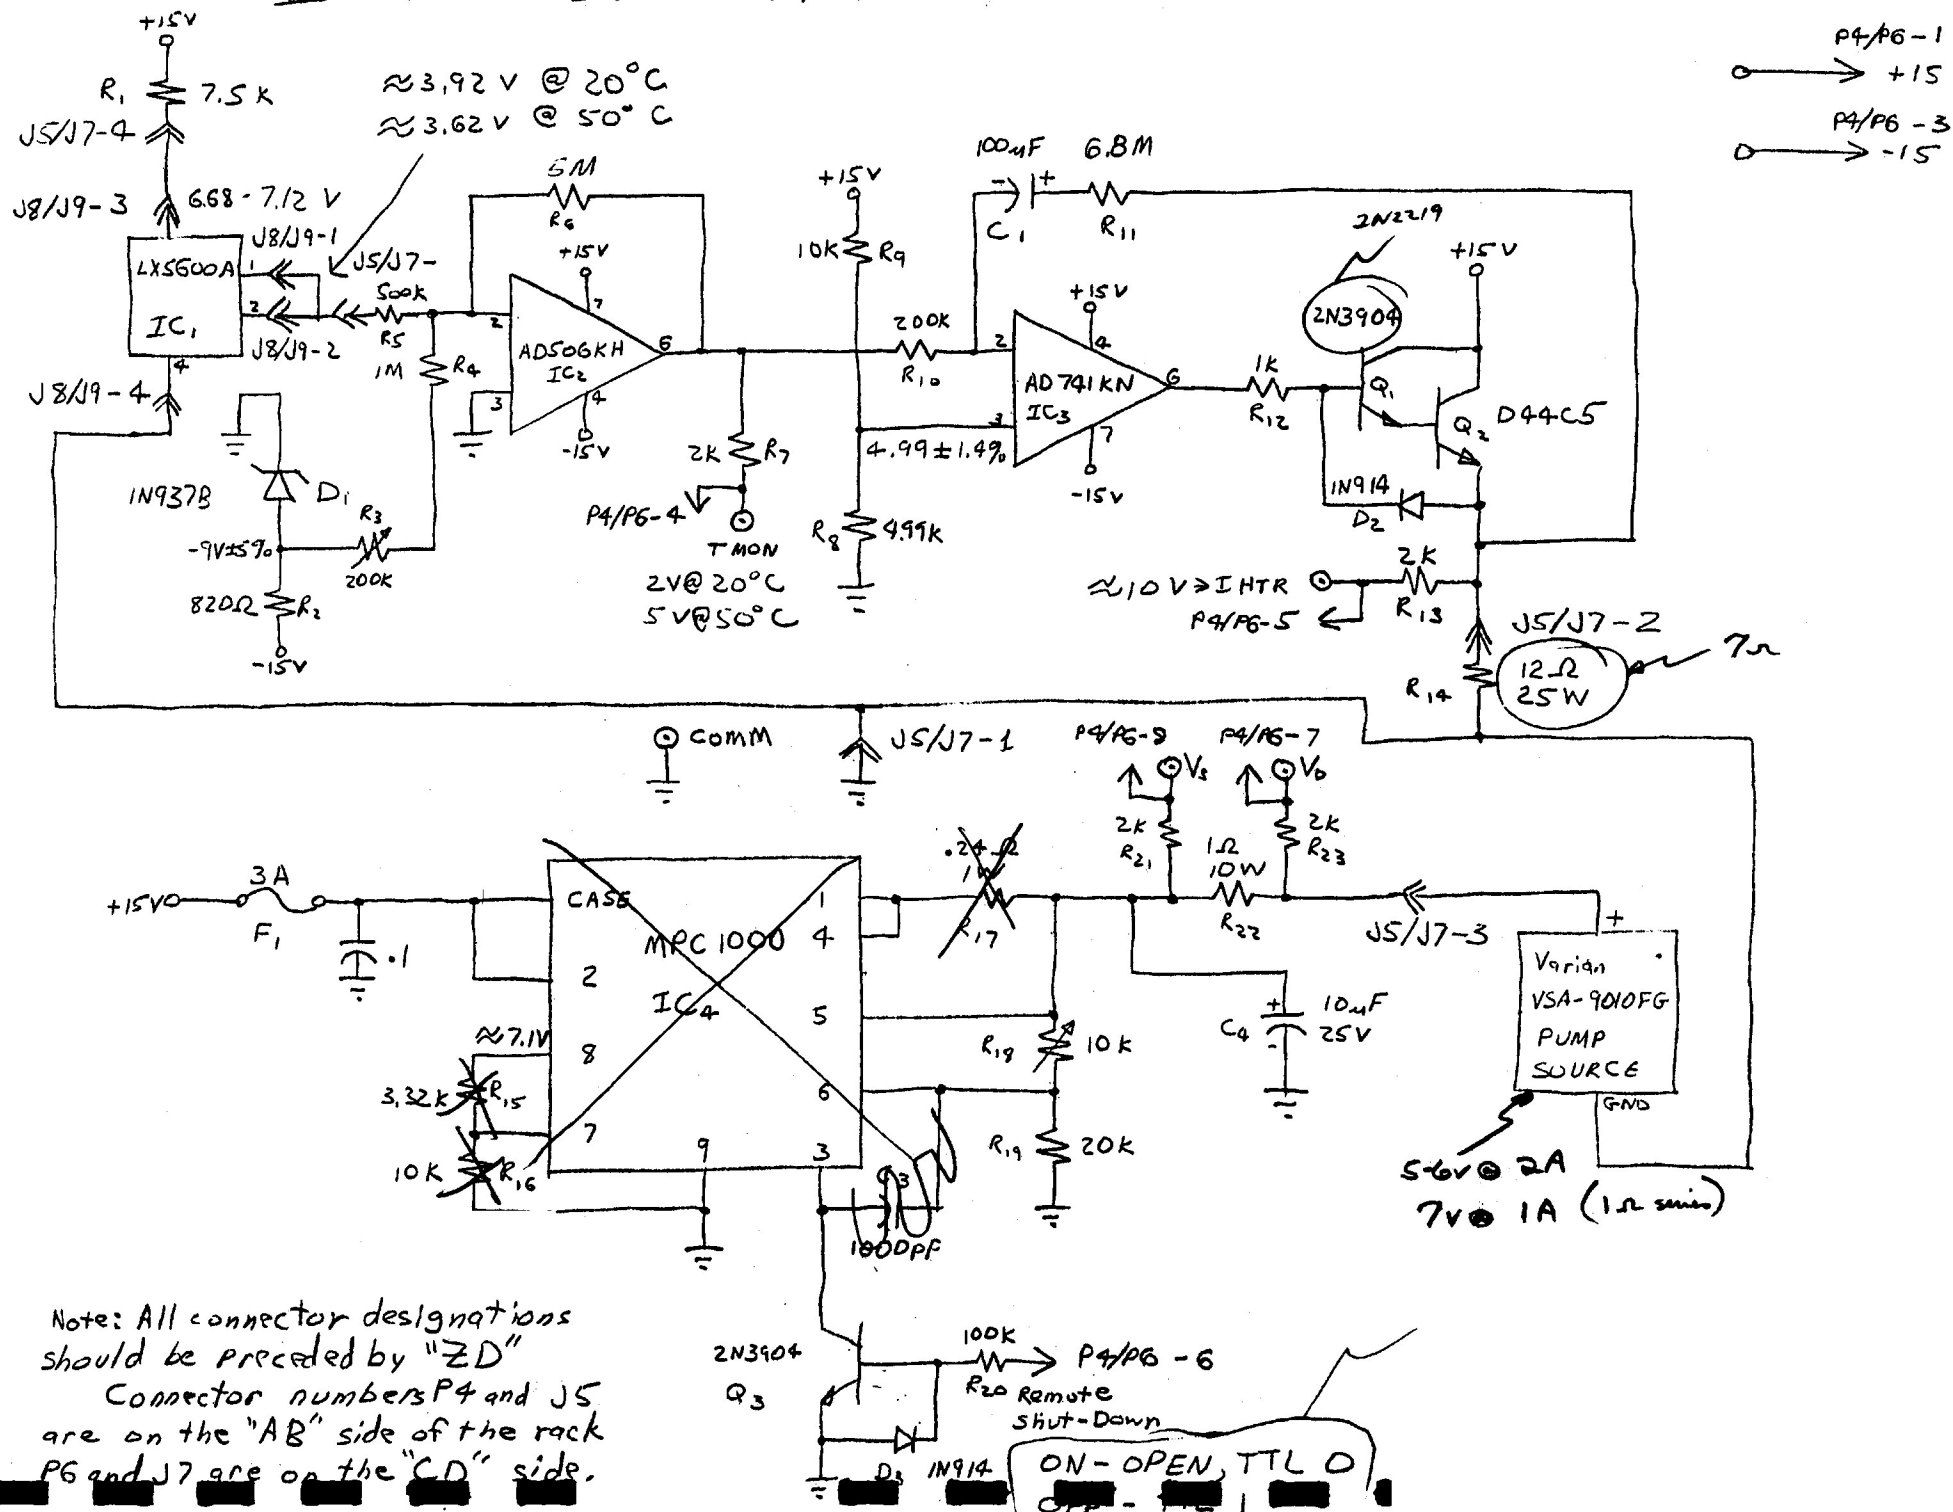 +15V
R1 7.5K
J5/J7-4
≈3.92 V @ 20°C
≈3.62V @ 50°C
J8/J9-3
6.68-7.12 V
J8/J9-1
LX5600A
IC1
1
2
4
J5/J7-
500K
R5
J8/J9-2
J8/J9-4
1M R4
5M
R6
+15V
7
2
3
AD506KH
IC2
6
4
-15V
1N937B
D1
-9V±5%
R3
200K
820Ω R2
-15V
2K R7
P4/P6-4
TMON
2V@20°C
5V@50°C
+15V
10K R9
200K
R10
4.99±1.4%
R8 4.99K
100µF 6.8M
- +
C1
R11
+15V
4
2
3
AD741KN
IC3
6
7
-15V
1K
R12
2N2219
2N3904
+15V
Q1
Q2
D44C5
1N914
D2
≈10V⇒IHTR
2K
R13
P4/P6-5
J5/J7-2
R14
12Ω
25W
7Ω
P4/P6-1
+15
P4/P6-3
-15
COMM
J5/J7-1
P4/P6-8
VS
P4/P6-7
VD
2K
R21
1Ω
10W
R22
2K
R23
J5/J7-3
+15V
3A
F1
.1
CASE
MPC1000
IC4
1
4
2
5
8
6
7
9
3
≈7.1V
3.32K R15
10K R16
.24Ω
1W
R17
R18 10K
R19 20K
C4
+
-
10µF
25V
C3
1000PF
+
Varian
VSA-9010FG
PUMP
SOURCE
GND
5-6V @ 2A
7V @ 1A (1Ω series)
2N3904
Q3
100K
R20
P4/P6-6
Remote
Shut-Down
D3 1N914
ON-OPEN, TTL 0
Note: All connector designations
should be preceded by "ZD"
Connector numbers P4 and J5
are on the "AB" side of the rack
P6 and J7 are on the "CD" side.